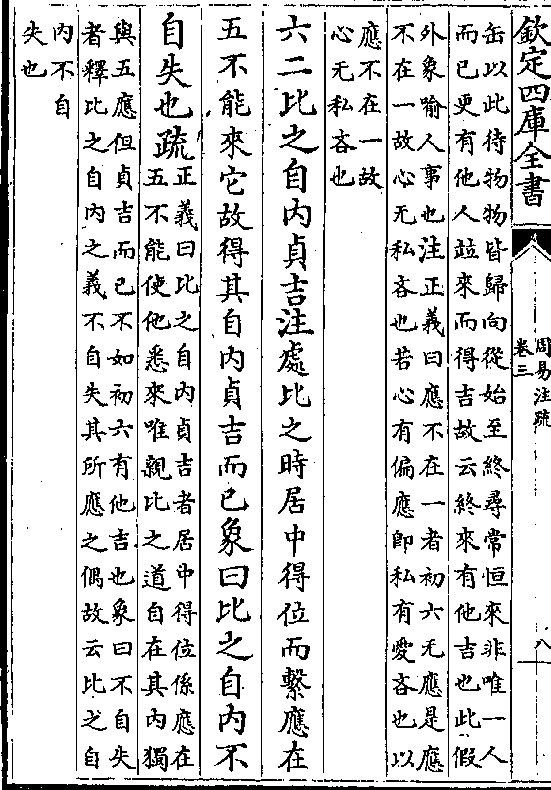 欽定四庫全書
周易注疏
卷三
八
缶以此待物物皆歸向從始至終尋常恒來非唯一人
而已更有他人竝來而得吉故云終來有他吉也此假
外象喻人事也注正義曰應不在一者初六无應是應
不在一故心无私吝也若心有偏應即私有愛吝也以
應不在一故
心无私吝也
六二比之自內貞吉注處比之時居中得位而繫應在
五不能來它故得其自內貞吉而已象曰比之自內不
自失也疏
正義曰比之自內貞吉者居中得位係應在
五不能使他悉來唯親比之道自在其內獨
與五應但貞吉而已不如初六有他吉也象曰不自失
者釋比之自內之義不自失其所應之偶故云比之自
內不自
失也